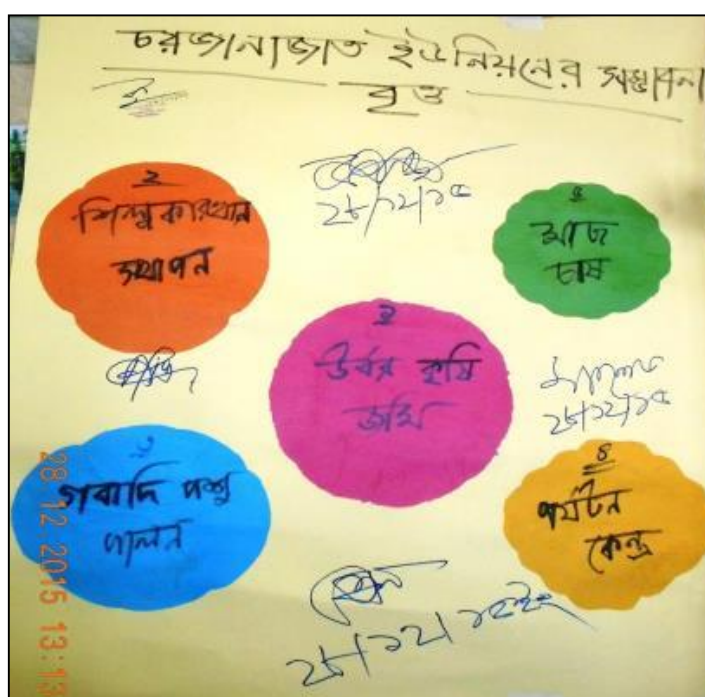 চরজানাজাত ইউনিয়নের সম্ভাবনা
বৃত্ত
২
শিল্পকারখানা
স্থাপন
২৮/১২/১৫
৫
মাছ
চাষ
১
উর্বর কৃষি
জমি
২৮/১২/১৫
৩
গবাদি পশু
পালন
৪
পর্যটন
কেন্দ্র
২৮/১২/১৫ইং
28.12.2015 13:13